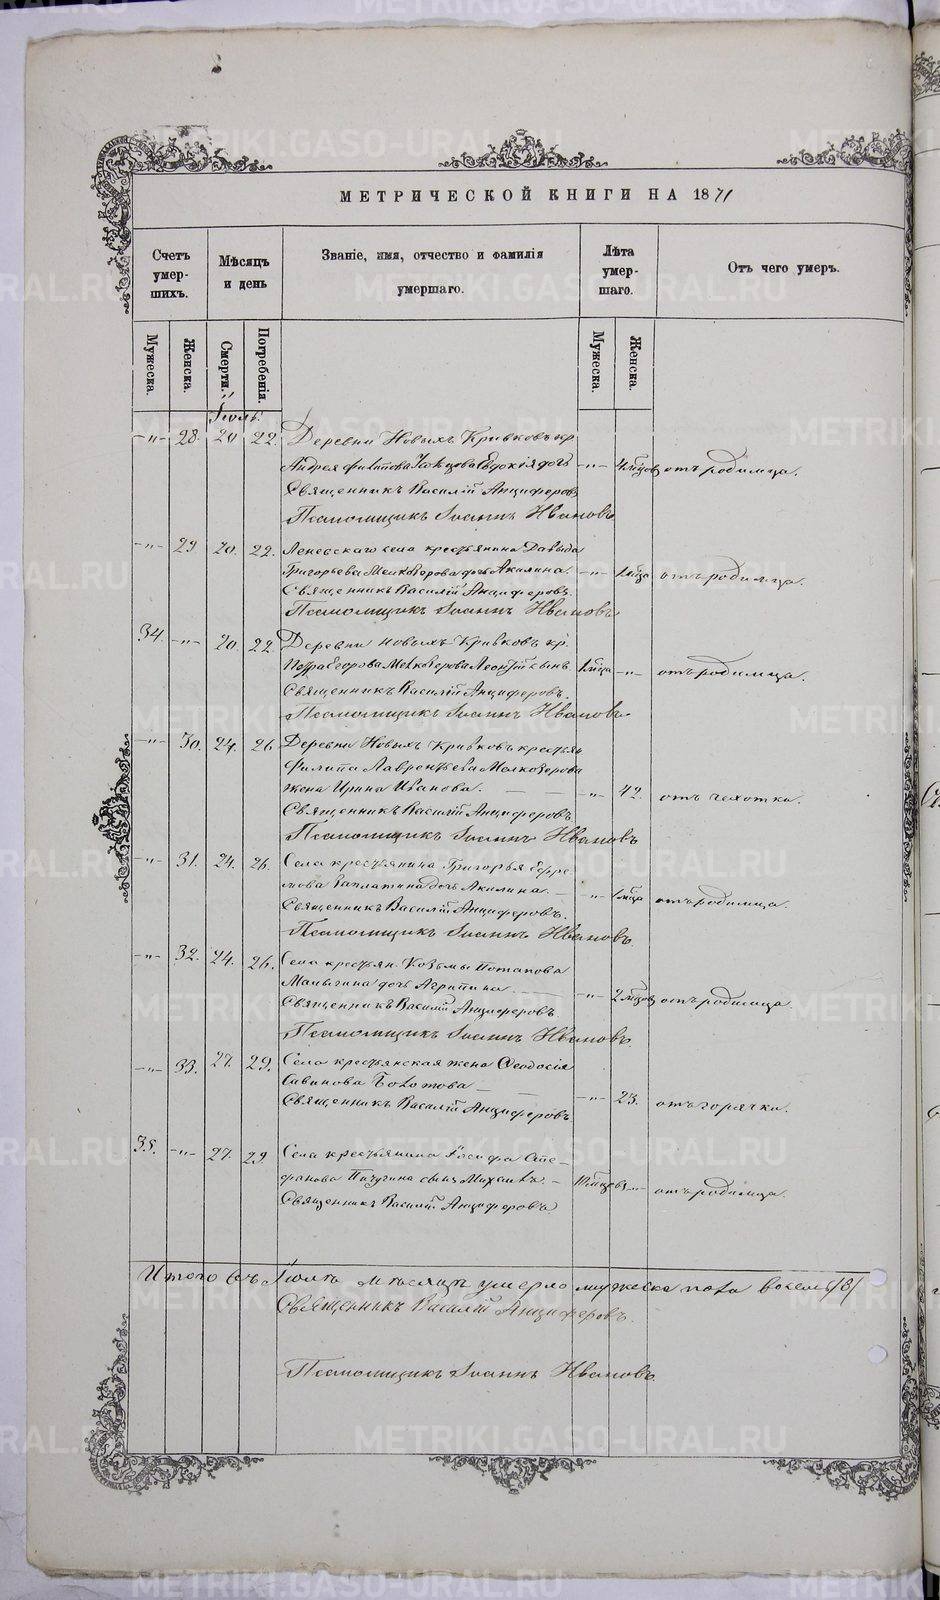 МЕТРИЧЕСКОЙ КНИГИ НА 1871
Счетъ умер- шихъ.
Мѣсяцъ и день
Званіе, имя, отчество и фамилія умершаго.
Лѣта умер- шаго.
Отъ чего умеръ.
Мужеска. Женска. Смерти. Погребенія. Мужеска. Женска.
Іюль.
-„- 28. 20 22. Деревни Новыхъ Кривковъ кр
Андрея Филипова Евдокія дочь -„- отъ родимца.
Священникъ Василій Анциферовъ
Псаломщикъ Іоаннъ Ивановъ
-„- 29 20. 22. Леневскаго села крестьянина Давыда
Григорьева Мелкозерова дочь Акилина. -„- отъ родимца.
Священникъ Василій Анциферовъ.
Псаломщикъ Іоаннъ Ивановъ
34 -„- 20. 22. Деревни новыхъ Кривковъ кр.
Петра Егорова Мелкозерова Леонтій сынъ -„- отъ родимца.
Священникъ Василій Анциферовъ.
Псаломщикъ Іоаннъ Ивановъ
-„- 30. 24. 26. Деревни Новыхъ Кривковъ крестьян
Филипа Лаврентьева Мелкозерова
жена Ирина Иванова. -„- 42. отъ чехотки.
Священникъ Василій Анциферовъ.
Псаломщикъ Іоаннъ Ивановъ
-„- 31. 24. 26. Села крестьянина Григорья Ефре-
мова дочь Акилина. -„- отъ родимца.
Священникъ Василій Анциферовъ.
Псаломщикъ Іоаннъ Ивановъ
-„- 32. 24. 26. Села крестьян. Козьмы Потапова
Малыгина дочь Агрипина -„- 2 мѣсяц отъ родимца
Священникъ Василій Анциферовъ.
Псаломщикъ Іоаннъ Ивановъ
-„- 33. 27. 29. Села крестьянская жена Ѳеодосія
Савинова Болотова -„- 23. отъ горячки.
Священникъ Василій Анциферовъ
35. -„- 27. 29 Села крестьянина Іосифа Сте-
фанова Пичугина сынъ Михаилъ. -„- отъ родимца.
Священникъ Василій Анциферовъ
Итого въ Іюлѣ мѣсяцѣ умерло мужеска пола восемь /8/
Священникъ Василій Анциферовъ.
Псаломщикъ Іоаннъ Ивановъ
METRIKI.GASO-URAL.RU